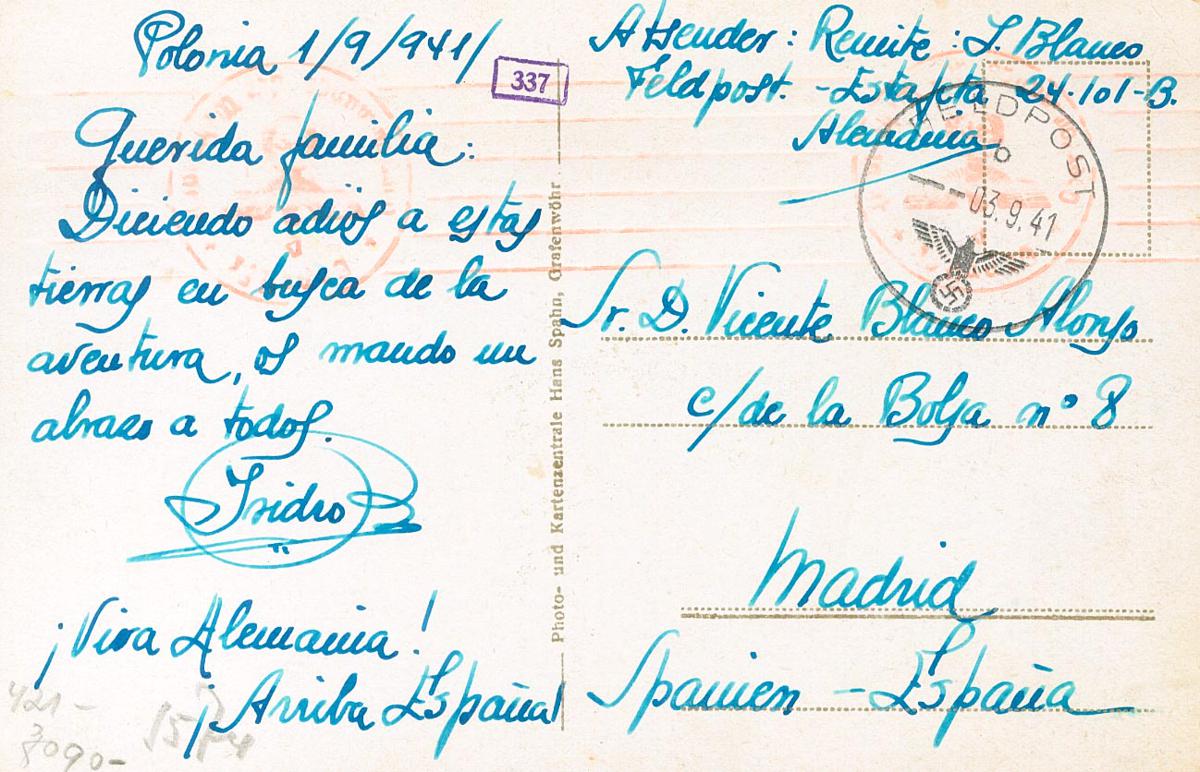 Polonia 1/9/941/
337
Querida familia:
Diciendo adios a estas
tierras en busca de la
aventura, os mando un
abrazo a todos.
Isidro B
¡Viva Alemania!
¡Arriba España!
421-
8090-
Photo- und Kartenzentrale Hans Spahn, Grafenwöhr
Absender: Remite: I. Blanco
Feldpost. - Estafeta 24.101-B.
Alemania
FELDPOST
b
03.9.41
Sr. D. Vicente Blanco Alonso
c/ de la Bolsa nº 8
Madrid
Spanien - España